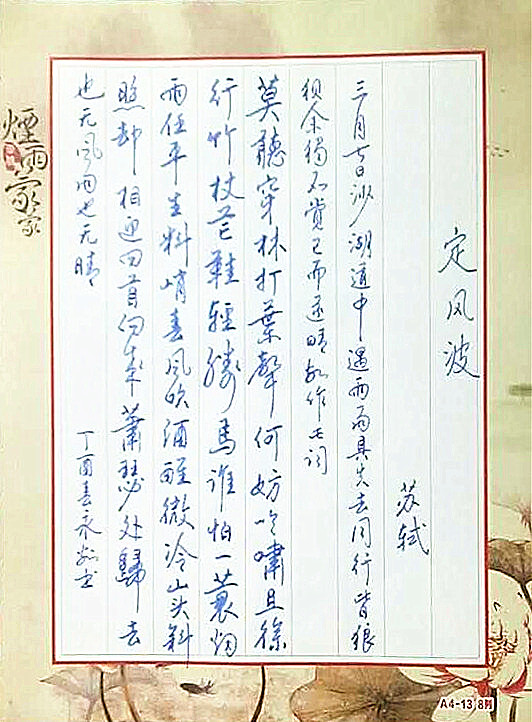 定风波
苏轼
三月七日沙湖道中遇雨雨具先去同行皆狼
狈余獨不觉已而遂晴故作此词
莫聽穿林打葉聲何妨吟嘯且徐
行竹杖芒鞋輕勝馬谁怕一蓑烟
雨任平生料峭春风吹酒醒微冷山头斜
照却相迎回首向来蕭瑟处歸去
也无风雨也无晴
丁酉春永书
煙雨蒙蒙
A4-13 8列